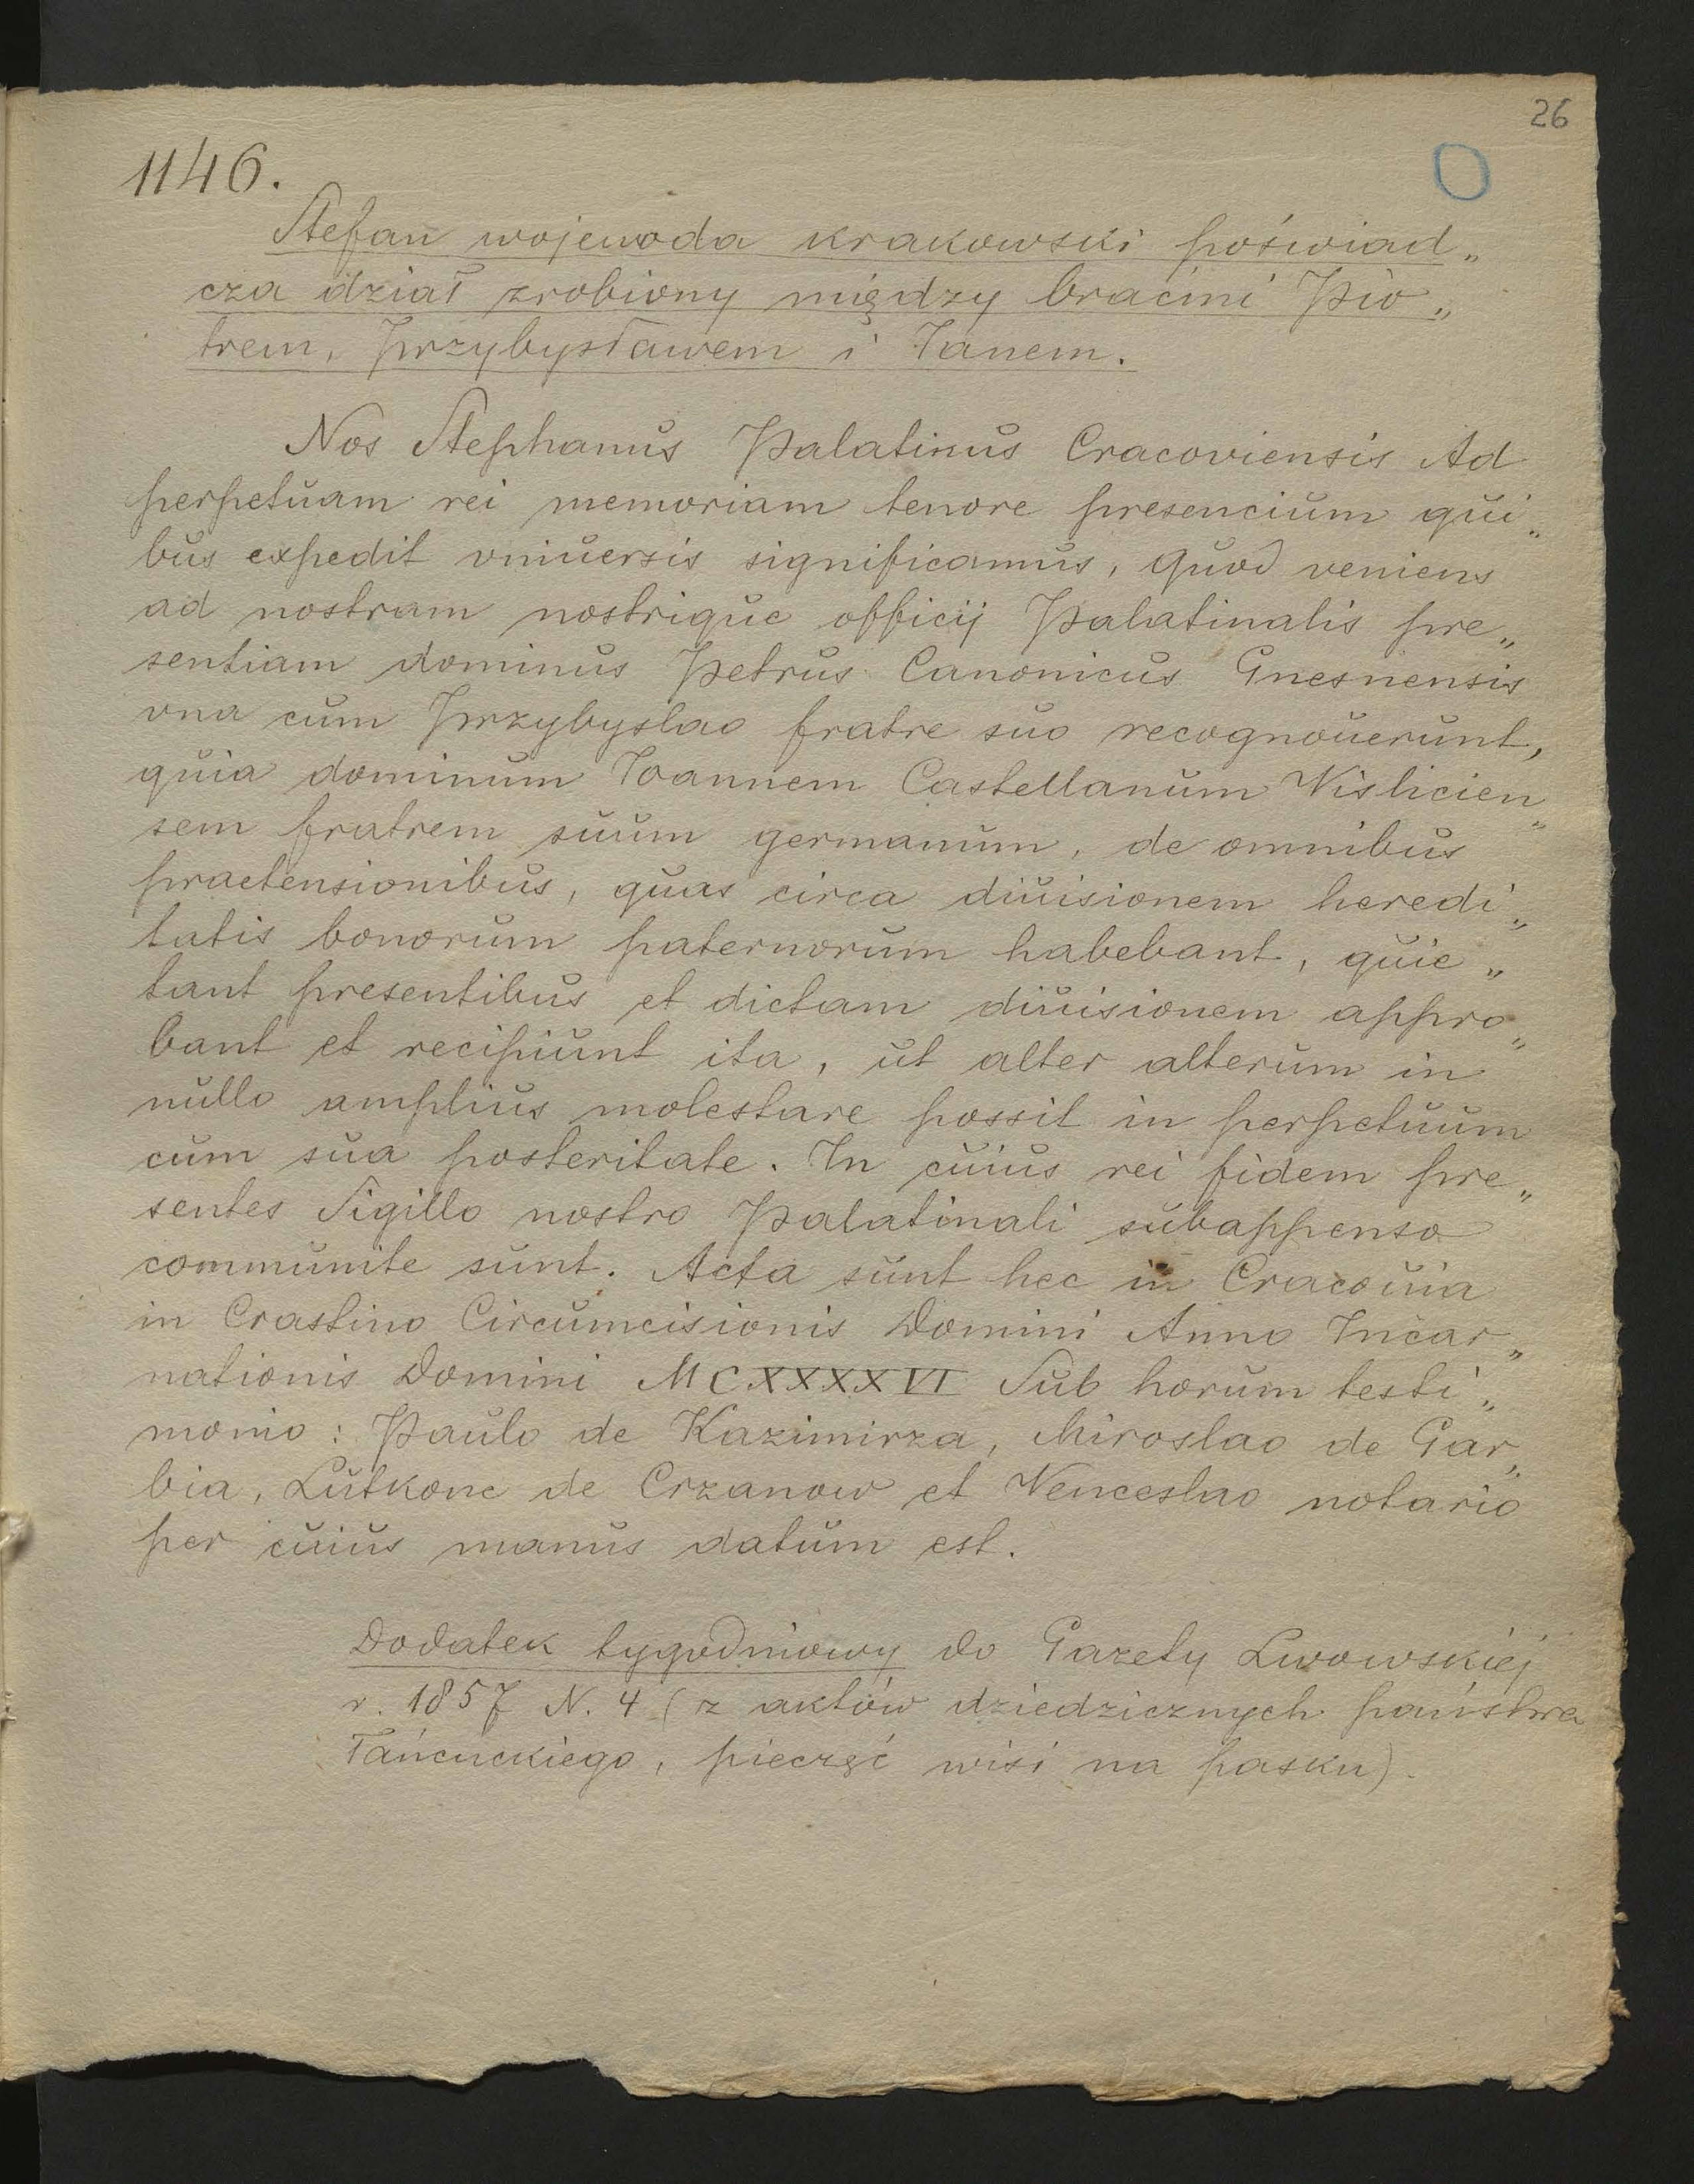 26
1146.
Stefan wojewoda krakowski poświad„
cza dział zrobiony między braćmi Pio„
trem, Przybysławem i Janem.
Nos Stephanus Palatinus Cracoviensis Ad
perpetuam rei memoriam tenore presencium qui„
bus expedit vniuersis significamus, quod veniens
ad nostram nostrique officij Palatinalis pre„
sentiam dominus Petrus Canonicus Gnesnensis
vna cum Przybyslao fratre suo recognouerunt,
quia dominum Joannem Castellanum Vislicien„
sem fratrem suum germanum, de omnibus
praetensionibus, quas circa diuisionem heredi„
tatis bonorum paternorum habebant, quie„
tant presentibus et dictam diuisionem appro„
bant et recipiunt ita, ut alter alterum in
nullo amplius molestare possit in perpetuum
cum sua posteritate. In cuius rei fidem pre„
sentes Sigillo nostro Palatinali subappenso
communite sunt. Acta sunt hec in Cracouia
in Crastino Circumcisionis Domini Anno Incar„
nationis Domini MCXXXXVI Sub horum testi„
monio: Paulo de Kazimirza, Miroslao de Gar„
bia, Lutkone de Crzanow et Venceslao notario
per cuius manus datum est.
Dodatek tygodniowy do Gazety Lwowskiej
r. 1857 N. 4 (z aktów dziedzicznych państwa
Łańcuckiego, pieczęć wisi na pasku).